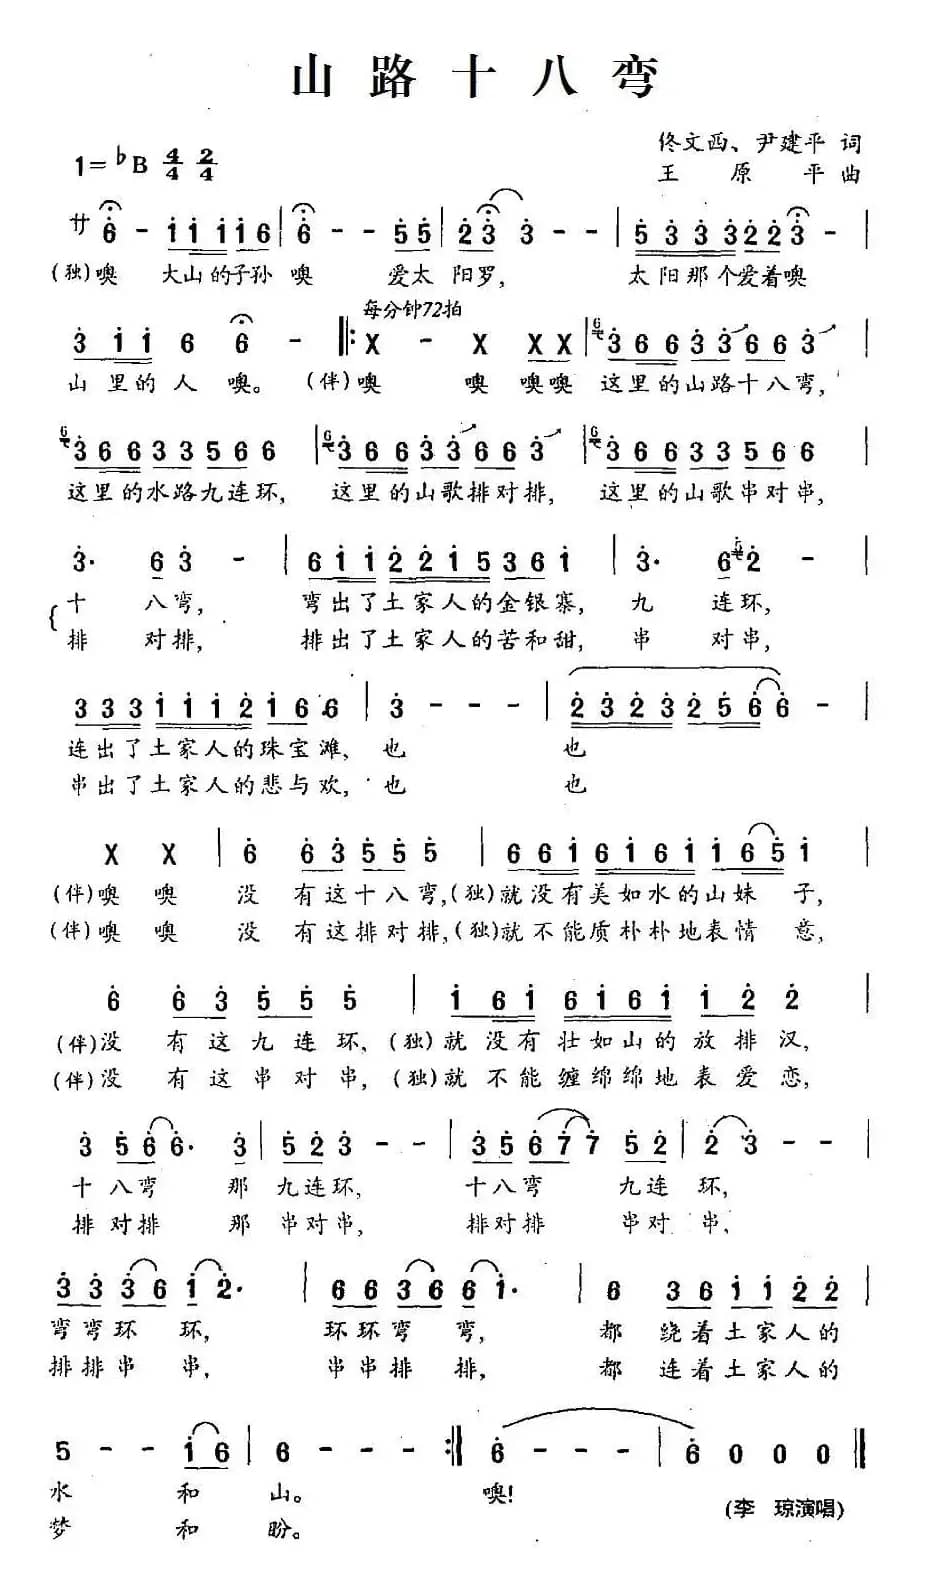 山路十八弯
佟文西、尹建平 词
1=♭B 4/4 2/4
王原平 曲
サ 6 - 1 1 1 1 6 | 6 - - 5 5 | 2 3 3 - - | 5 3 3 3 2 2 3 - |
(独)噢 大山的子孙 噢 爱太 阳罗, 太阳那个爱着噢
每分钟72拍
3 1 1 6 6 - ‖: X - X X X | 3 6 6 3 3 6 6 3 |
山里的人噢。 (伴)噢 噢 噢噢 这里的山路十八弯,
3 6 6 3 3 5 6 6 | 3 6 6 3 3 6 6 3 | 3 6 6 3 3 5 6 6 |
这里的水路九连环, 这里的山歌排对排, 这里的山歌串对串,
3· 6 3 - | 6 1 1 2 2 1 5 3 6 1 | 3· 6 2 - |
十 八弯, 弯出了土家人的金银寨, 九 连环,
排 对排, 排出了土家人的苦和甜, 串 对串,
3 3 3 1 1 1 2 1 6 6 | 3 - - - | 2 3 2 3 2 5 6 6 - |
连出了土家人的珠宝滩, 也 也
串出了土家人的悲与欢, 也 也
X X | 6 6 3 5 5 5 | 6 6 1 6 1 6 1 1 6 5 1 |
(伴)噢 噢 没 有这十八弯,(独)就没有美如水的山妹 子,
(伴)噢 噢 没 有这排对排,(独)就不能质朴朴地表情 意,
6 6 3 5 5 5 | 1 6 1 6 1 6 1 1 2 2 |
(伴)没 有这九连环, (独)就没有壮如山的放排汉,
(伴)没 有这串对串, (独)就不能缠绵绵地表爱恋,
3 5 6 6· 3 | 5 2 3 - - | 3 5 6 7 7 5 2 | 2 3 - - |
十八弯 那 九连环, 十八弯 九连 环,
排对排 那 串对串, 排对排 串对 串,
3 3 3 6 1 2· | 6 6 3 6 6 1· | 6 3 6 1 1 2 2 |
弯弯环 环, 环环弯 弯, 都 绕着土家人的
排排串 串, 串串排 排, 都 连着土家人的
5 - - 1 6 | 6 - - - :‖ 6 - - - | 6 0 0 0 ‖
水 和 山。 噢!
(李 琼演唱)
梦 和 盼。